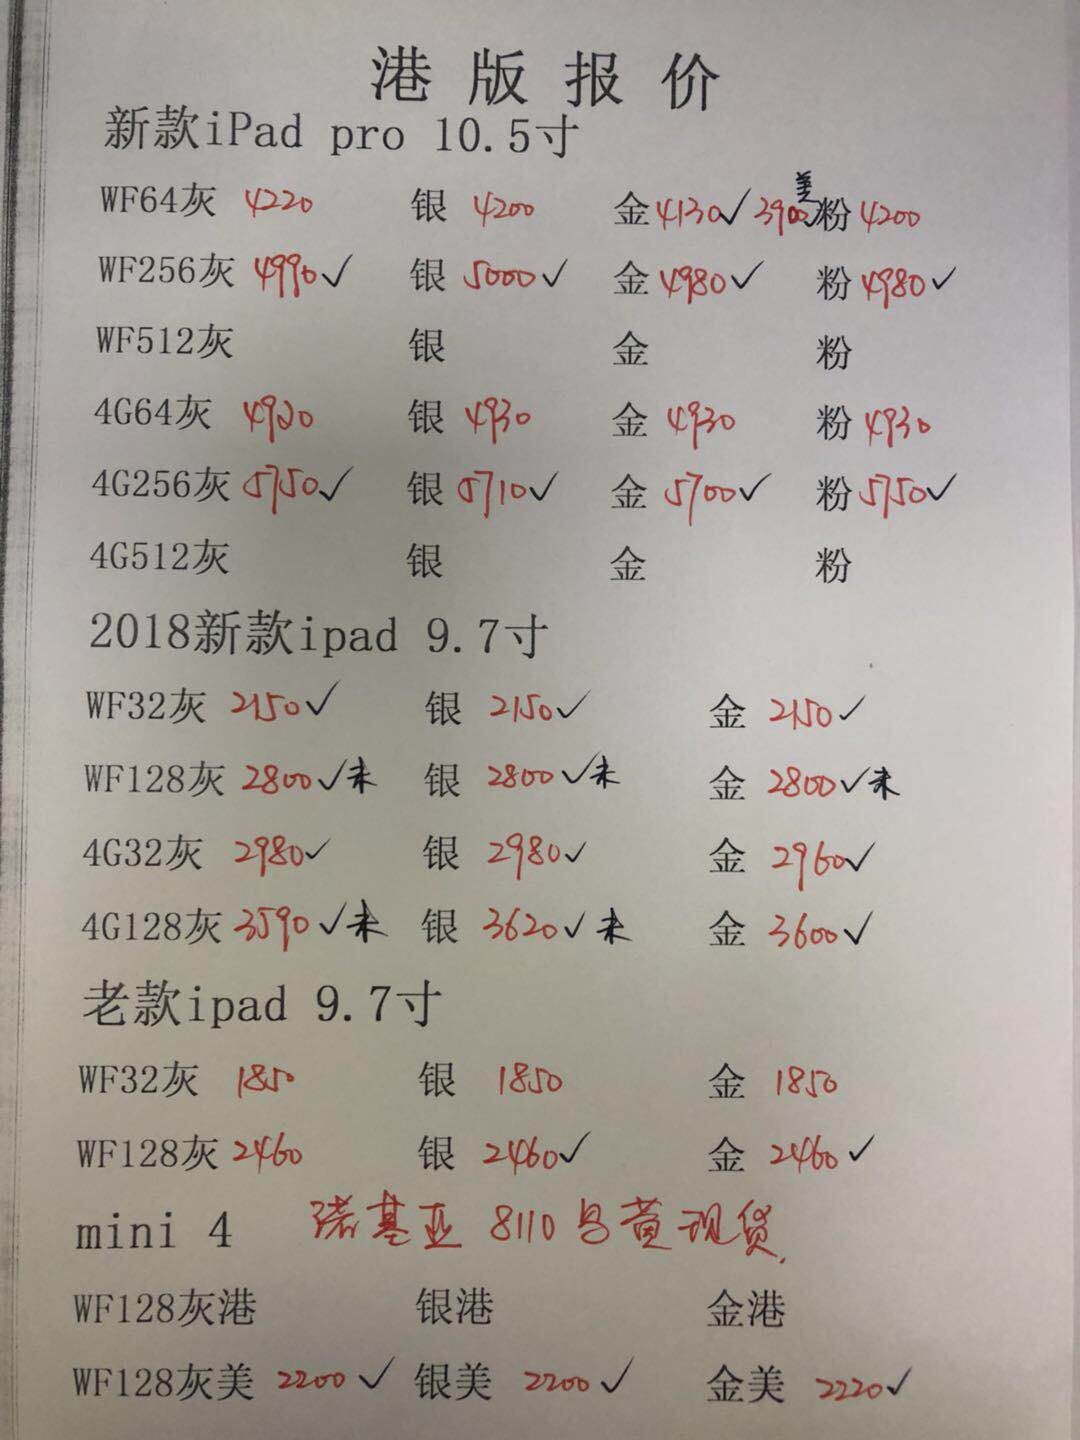 港版报价
新款iPad pro 10.5寸
WF64灰 4220 银 4200 金 4130✓ 3900✓ 美 粉 4200
WF256灰 4990✓ 银 5000✓ 金 4980✓ 粉 4980✓
WF512灰 银 金 粉
4G64灰 4920 银 4930 金 4930 粉 4930
4G256灰 5750✓ 银 5710✓ 金 5700✓ 粉 5750✓
4G512灰 银 金 粉
2018新款ipad 9.7寸
WF32灰 2150✓ 银 2150✓ 金 2150✓
WF128灰 2800✓未 银 2800✓未 金 2800✓未
4G32灰 2980✓ 银 2980✓ 金 2960✓
4G128灰 3590✓未 银 3620✓未 金 3600✓
老款ipad 9.7寸
WF32灰 1850 银 1850 金 1850
WF128灰 2460 银 2460✓ 金 2460✓
mini 4 诺基亚 8110 黄现货
WF128灰港 银港 金港
WF128灰美 2200✓ 银美 2200✓ 金美 2220✓